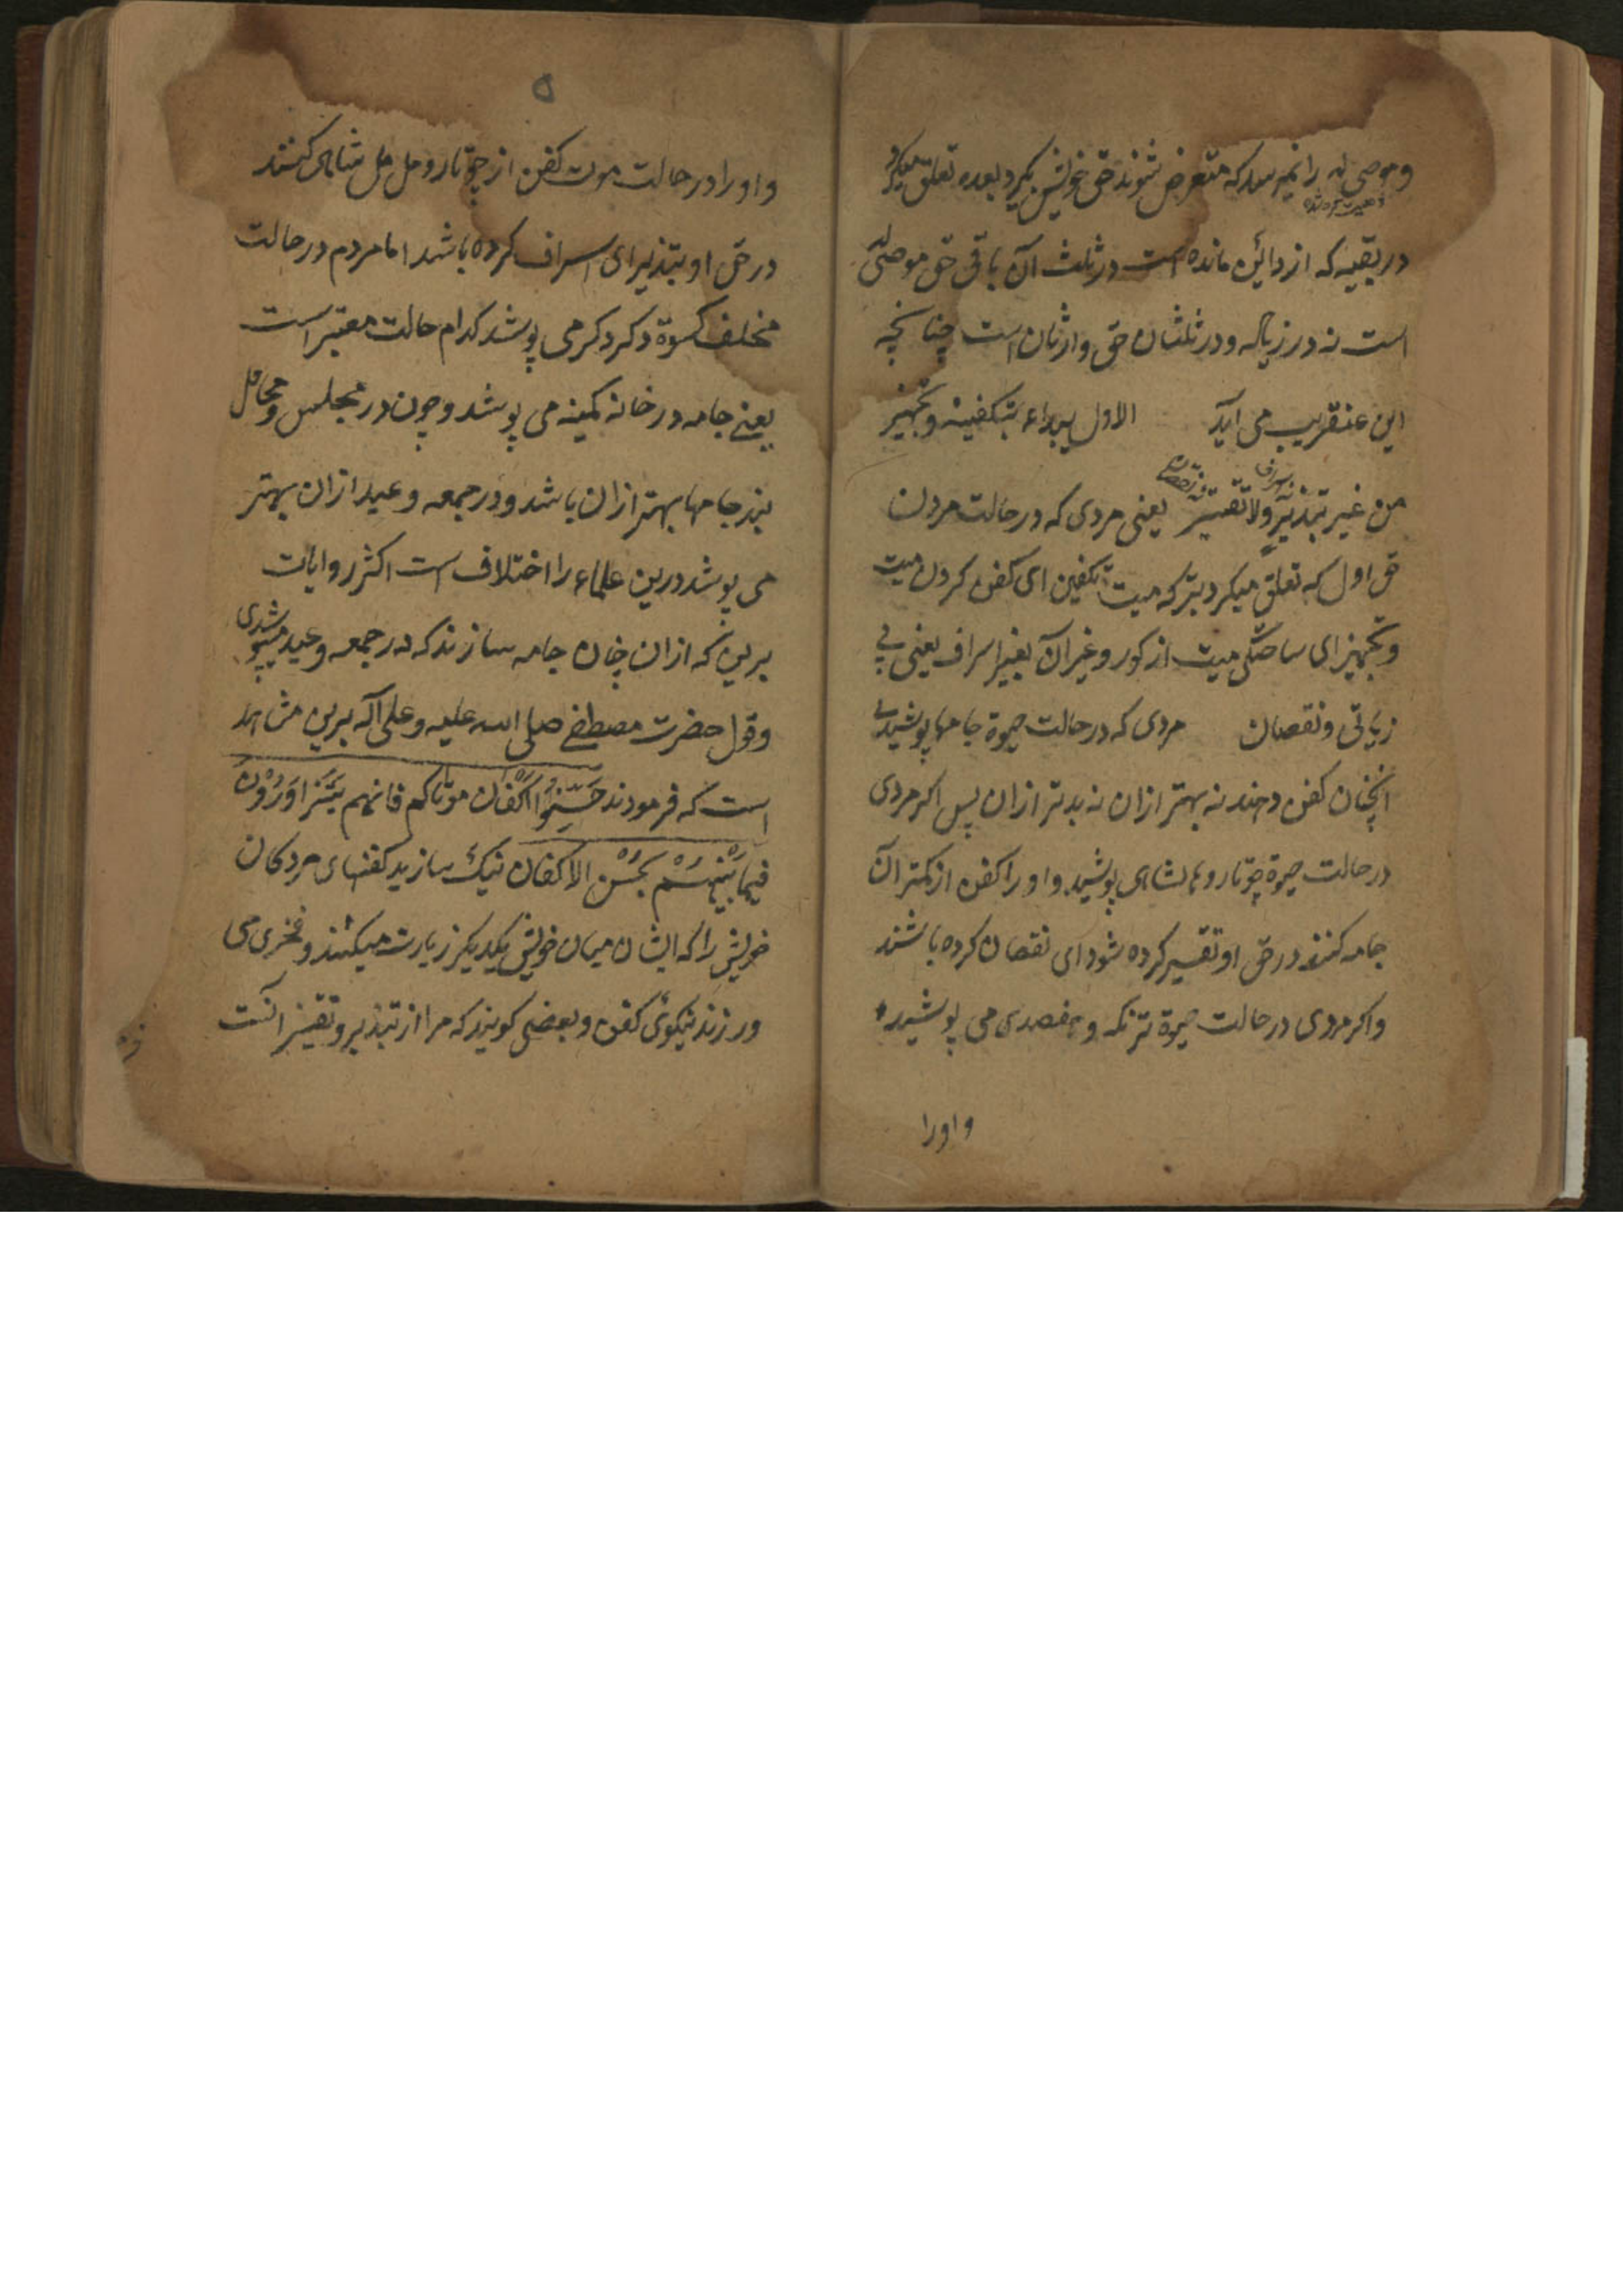 و موصی له را نمیرسد که متعرض شوند حق خویش بگیرد بعده تعلق میگیرد
در بقیه که از داین مانده است در ثلث آن باقی حق موصی له
است نه در زیاله و در ثلثان حق وارثان است چنانچه
این عنقریب می آید الاول یبداء بتکفینه و تجهیزه
من غیر تبذیر ولا تقتیر یعنی مردی که در حالت مردن
حق اول که تعلق میگیرد بترکه میت تکفین ای کفن کردن میت
و تجهیز ای ساختگی میت از کور و غیر آن بغیر اسراف یعنی بی
زیادتی و نقصان مردی که در حالت حیوة جامها پوشیدی
انچنان کفن دهند نه بهتر ازان نه بدتر ازان پس اکر مردی
در حالت حیوة چوتار و شاهی پوشید و او را کفن از کمتر آن
جامه کنند در حق او تقسیر کرده شود ای نقصان کرده باشند
و اکر مردی در حالت حیوة ترنکه و هفصدی می پوشید
و او را
۵
و او را در حالت موت کفن از چوتار و مل مل شاهی کنند
در حق او تبذیر ای اسراف کرده باشد اما مردم در حالت
مختلف کسوة دکر دکر می پوشد کدام حالت معتبر است
یعنے جامه در خانه کمینه می پوشد و چون در مجلس و محافل
بند جامها بهتر ازان باشد و در جمعه و عید ازان بهتر
می پوشد درین علماء را اختلاف است اکثر روایات
برین که ازان چنان جامه سازند که در جمعه و عید میپوشیدی
و قول حضرت مصطفے صلی الله علیه و علی آله برین شاهد
است که فرمودند حَسِّنُوا اکفان موتاکم فانهم یتزاورون
فیما بینهم بحسن الاکفان نیک سازید کفنهای مردکان
خویش را که ایشان میان خویش یکدیکر زیارت میکنند و فخری می
ورزند نیکوئی کفن و بعضی کویند که مرا از تبذیر و تقتیر آنست